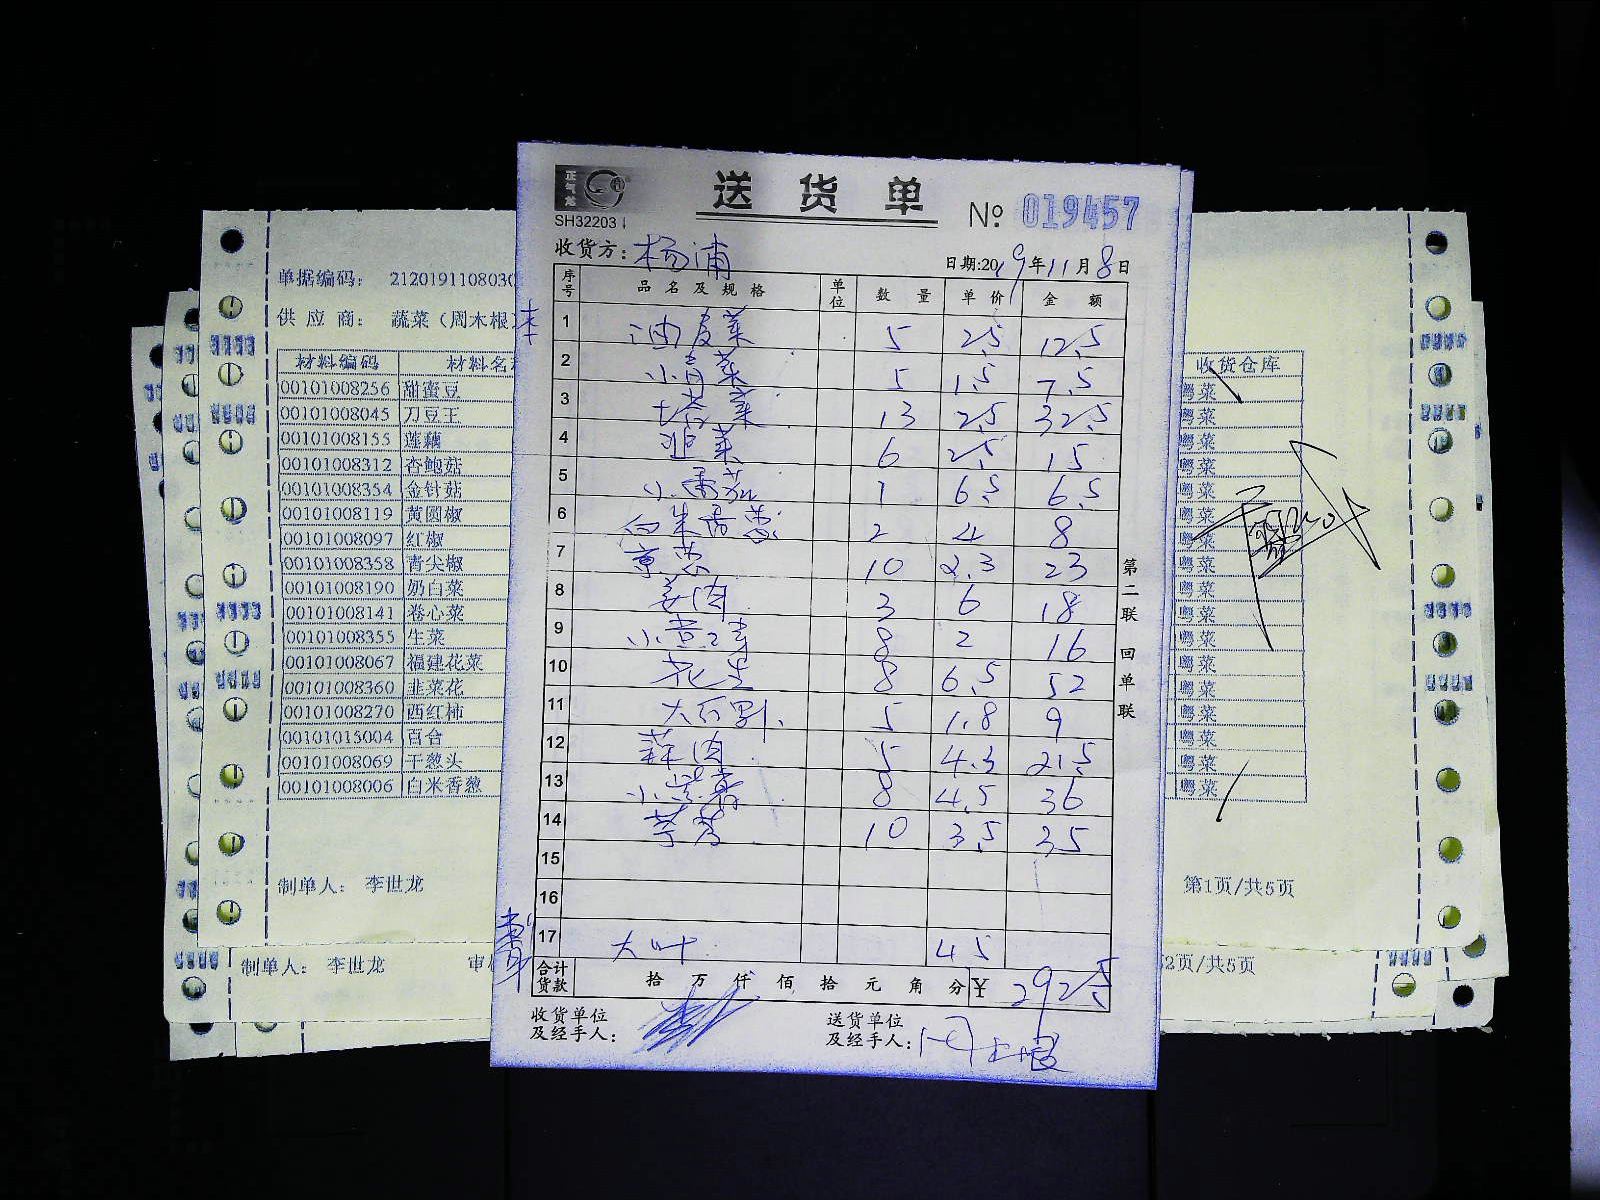 正气龙
SH32203
送货单
№ 019457
收货方: 杨浦
日期:2019年11月8日
序号 品名及规格 单位 数量 单价 金额
1 油皮菜 5 2.5 12.5
2 小青菜 5 1.5 7.5
3 塔菜 13 2.5 32.5
4 韭菜 6 2.5 15
5 6.5 6.5
6 2 4 8
7 京葱 10 2.3 23
8 姜肉 3 6 18
9 8 2 16
10 花生 8 6.5 52
11 5 1.8 9
12 蒜肉 5 4.3 21.5
13 8 4.5 36
14 芋艿 10 3.5 35
15
16
17 大叶 45
合计货款 拾万仟佰拾元角分 ¥ 292.5
收货单位及经手人:
送货单位及经手人: 周木根
第二联回单联
单据编码: 2120191108030
供应商: 蔬菜(周木根)
材料编码 材料名 收货仓库
00101008256 甜蜜豆 粤菜
00101008045 刀豆王 粤菜
00101008155 莲藕 粤菜
00101008312 杏鲍菇 粤菜
00101008354 金针菇 粤菜
00101008119 黄圆椒 粤菜
00101008097 红椒 粤菜
00101008358 青尖椒 粤菜
00101008190 奶白菜 粤菜
00101008141 卷心菜 粤菜
00101008355 生菜 粤菜
00101008067 福建花菜 粤菜
00101008360 韭菜花 粤菜
00101008270 西红柿 粤菜
00101015004 百合 粤菜
00101008069 干葱头 粤菜
00101008006 白米香葱 粤菜
制单人: 李世龙
第1页/共5页
制单人: 李世龙 审
2页/共5页